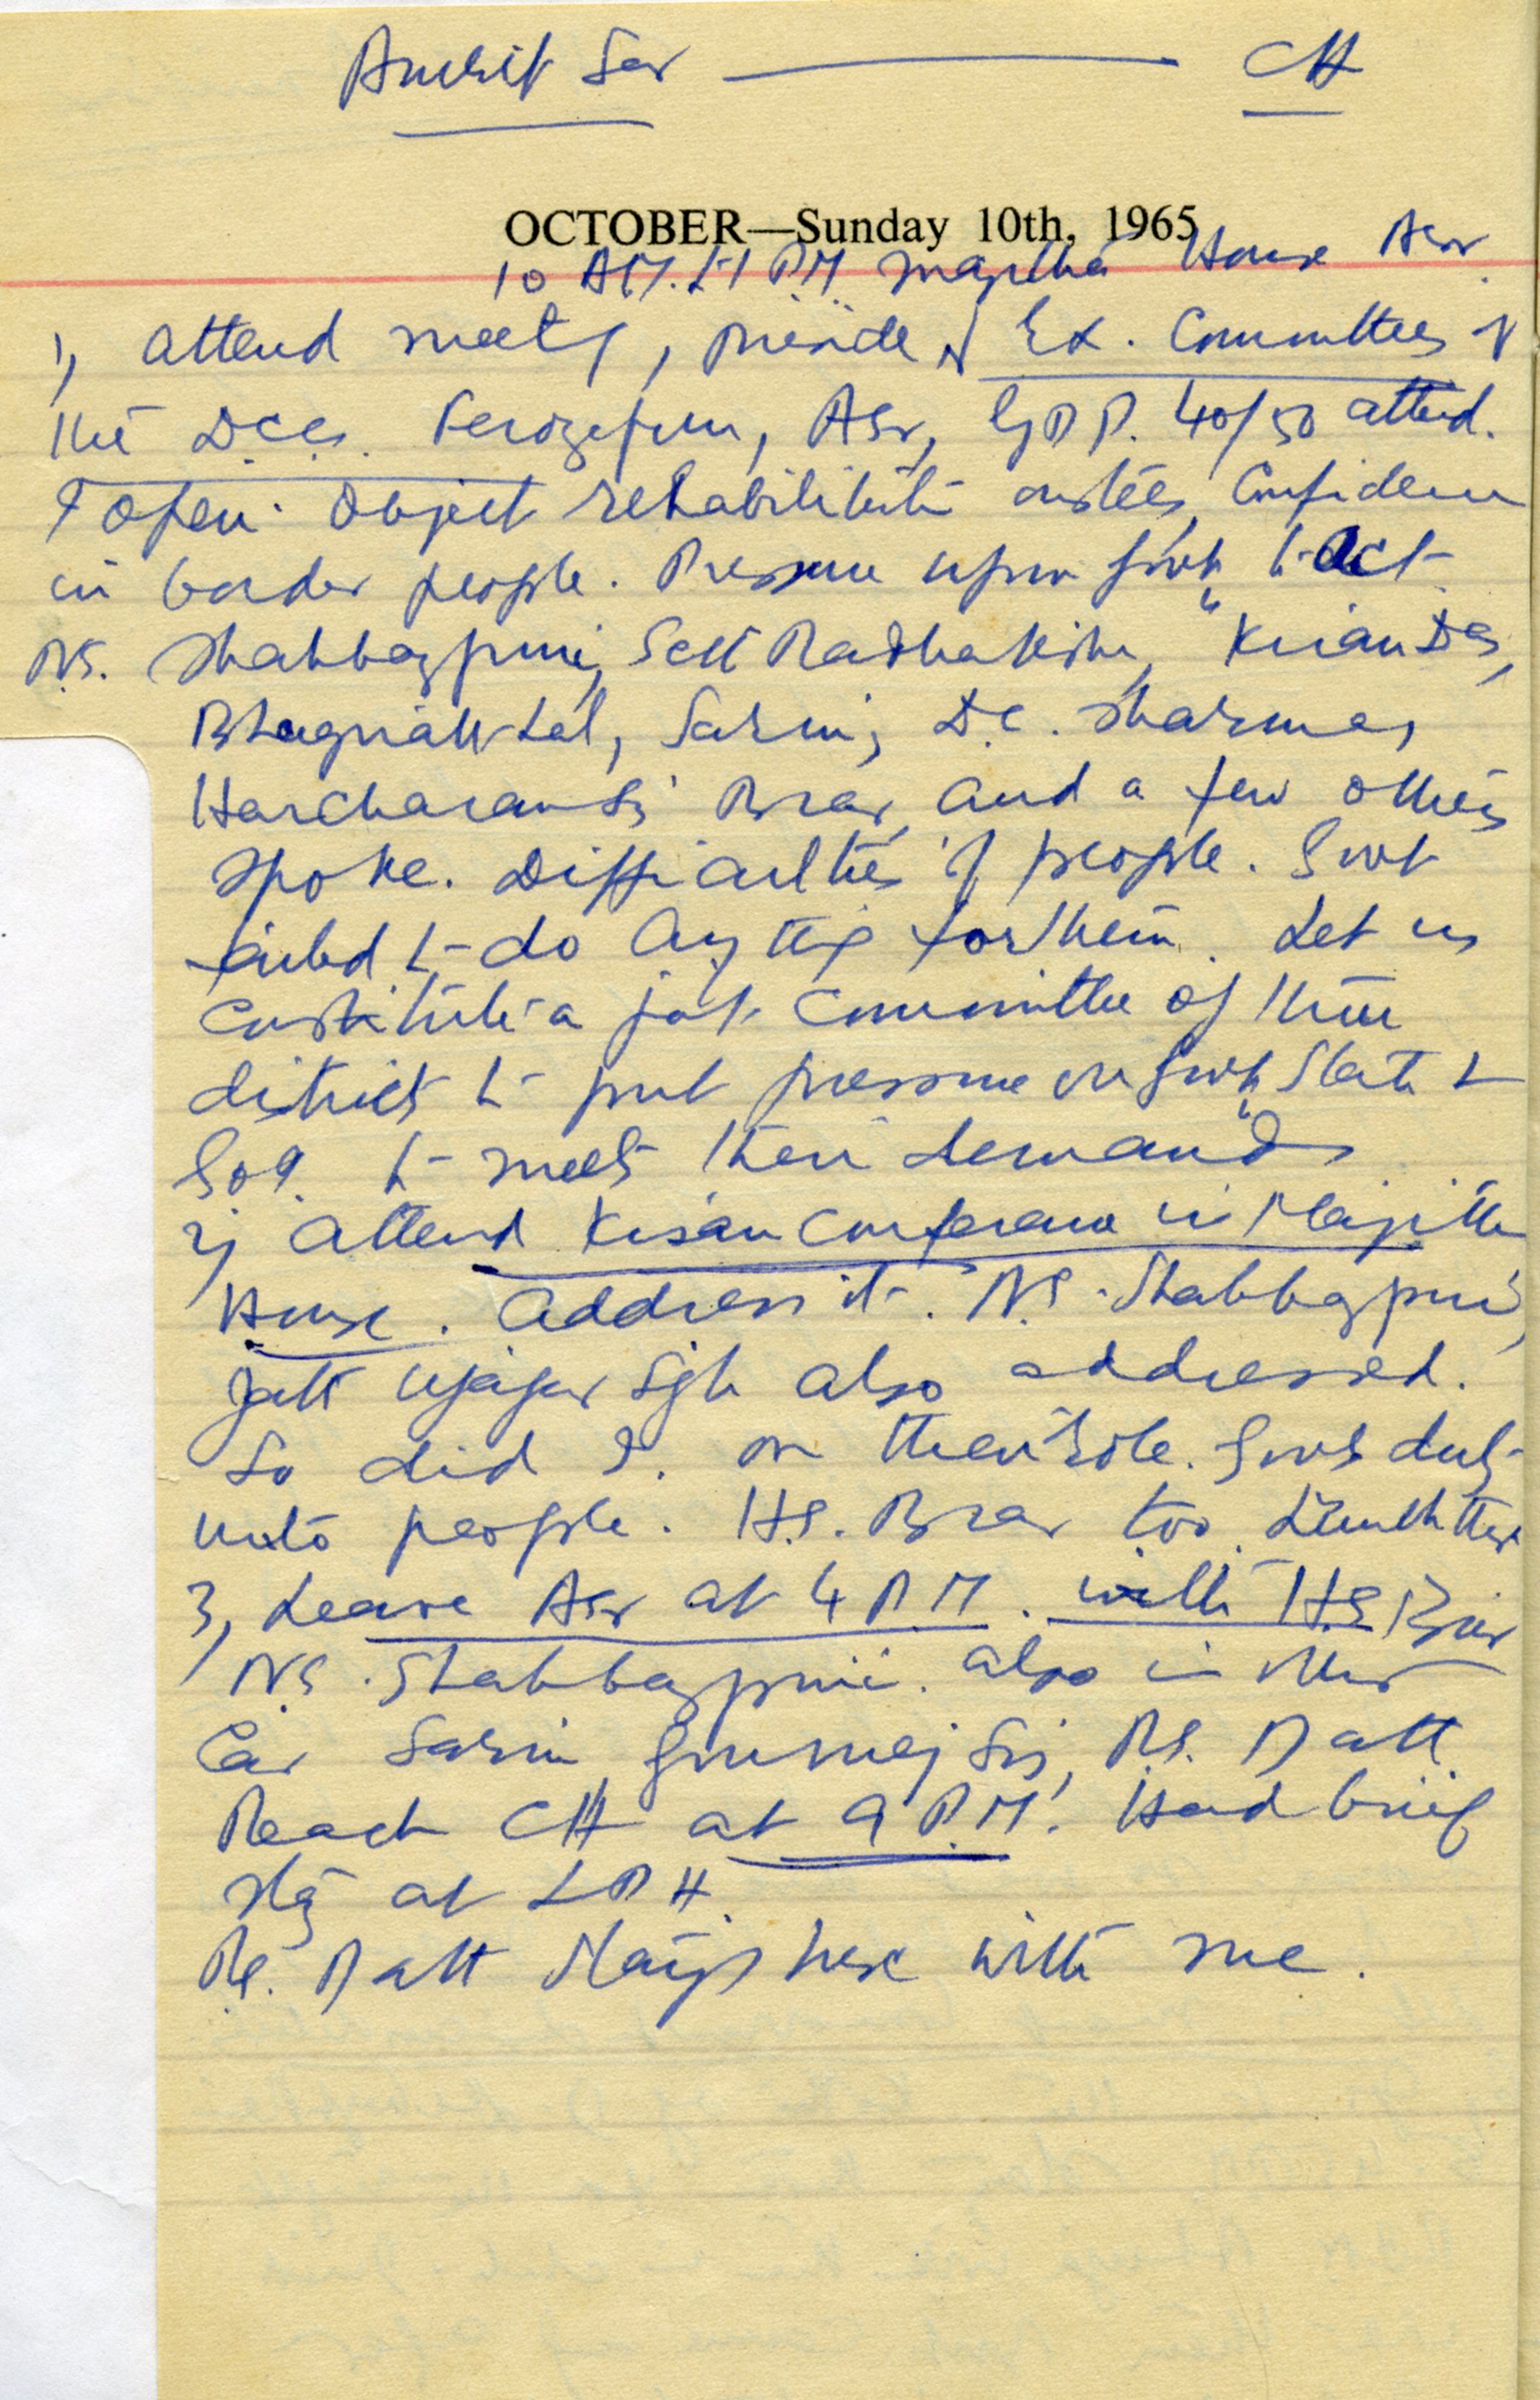 Amrit Sar — CH
OCTOBER—Sunday 10th, 1965
10 AM. to 1 PM Majitha House Asr
1, attend meetg, preside of Ex. Committees of
the D.C.Cs. Ferozepur, Asr, GDP. 40/50 attend.
I open. Object rehabilitati oustees, Confidence
in border people. Pressure upon Govt to act
N.S. Shahbazpuri, Seth Radhakishn, " Kisan Das,
Bhagmal Lal, Sarin, D.C. Sharma,
Harcharan Si Brar, and a few others
spoke. Difficulties of people. Govt
failed to do any thg for them. Let us
constitute a jot committee of three
districts to put pressure on Govt, State &
GoI. to meet their demands
2, attend Kisan Conference in Majitha
House. Address it. N.S. Shahbazpuri,
Jatt Ujagar Sgh also addressed.
So did I. on their role. Govts duty
unto people. H.S. Brar too.
3, Leave Asr at 4 P.M. with H.S. Brar
N.S. Shahbazpuri. also in other
Car Sarin, Gurmej Si, R.S. Datt
Reach CH at 9 P.M. Had brief
stg at LDH
R.S. Datt stays here with me.